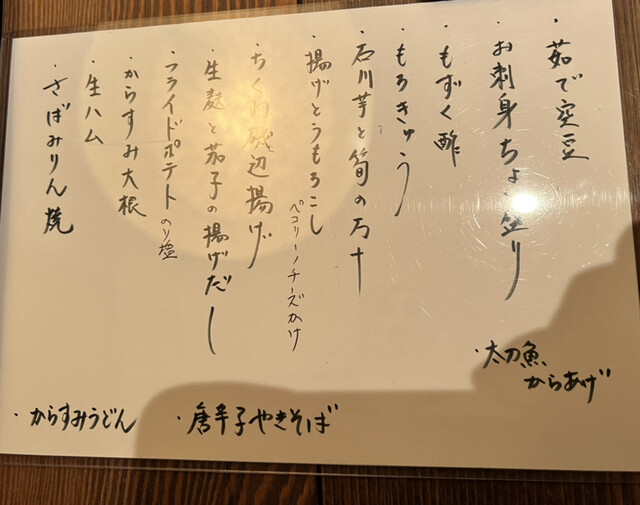 ・茹で空豆
・お刺身ちょい盛り
・もずく酢
・もろきゅう
・石川芋と筍の万十
・揚げとうもろこし
ペコリーノチーズかけ
・ちくわ磯辺揚げ
・生麩と茄子の揚げだし
・フライドポテト のり塩
・からすみ大根
・生ハム
・さばみりん焼
・太刀魚
からあげ
・唐辛子やきそば
・からすみうどん